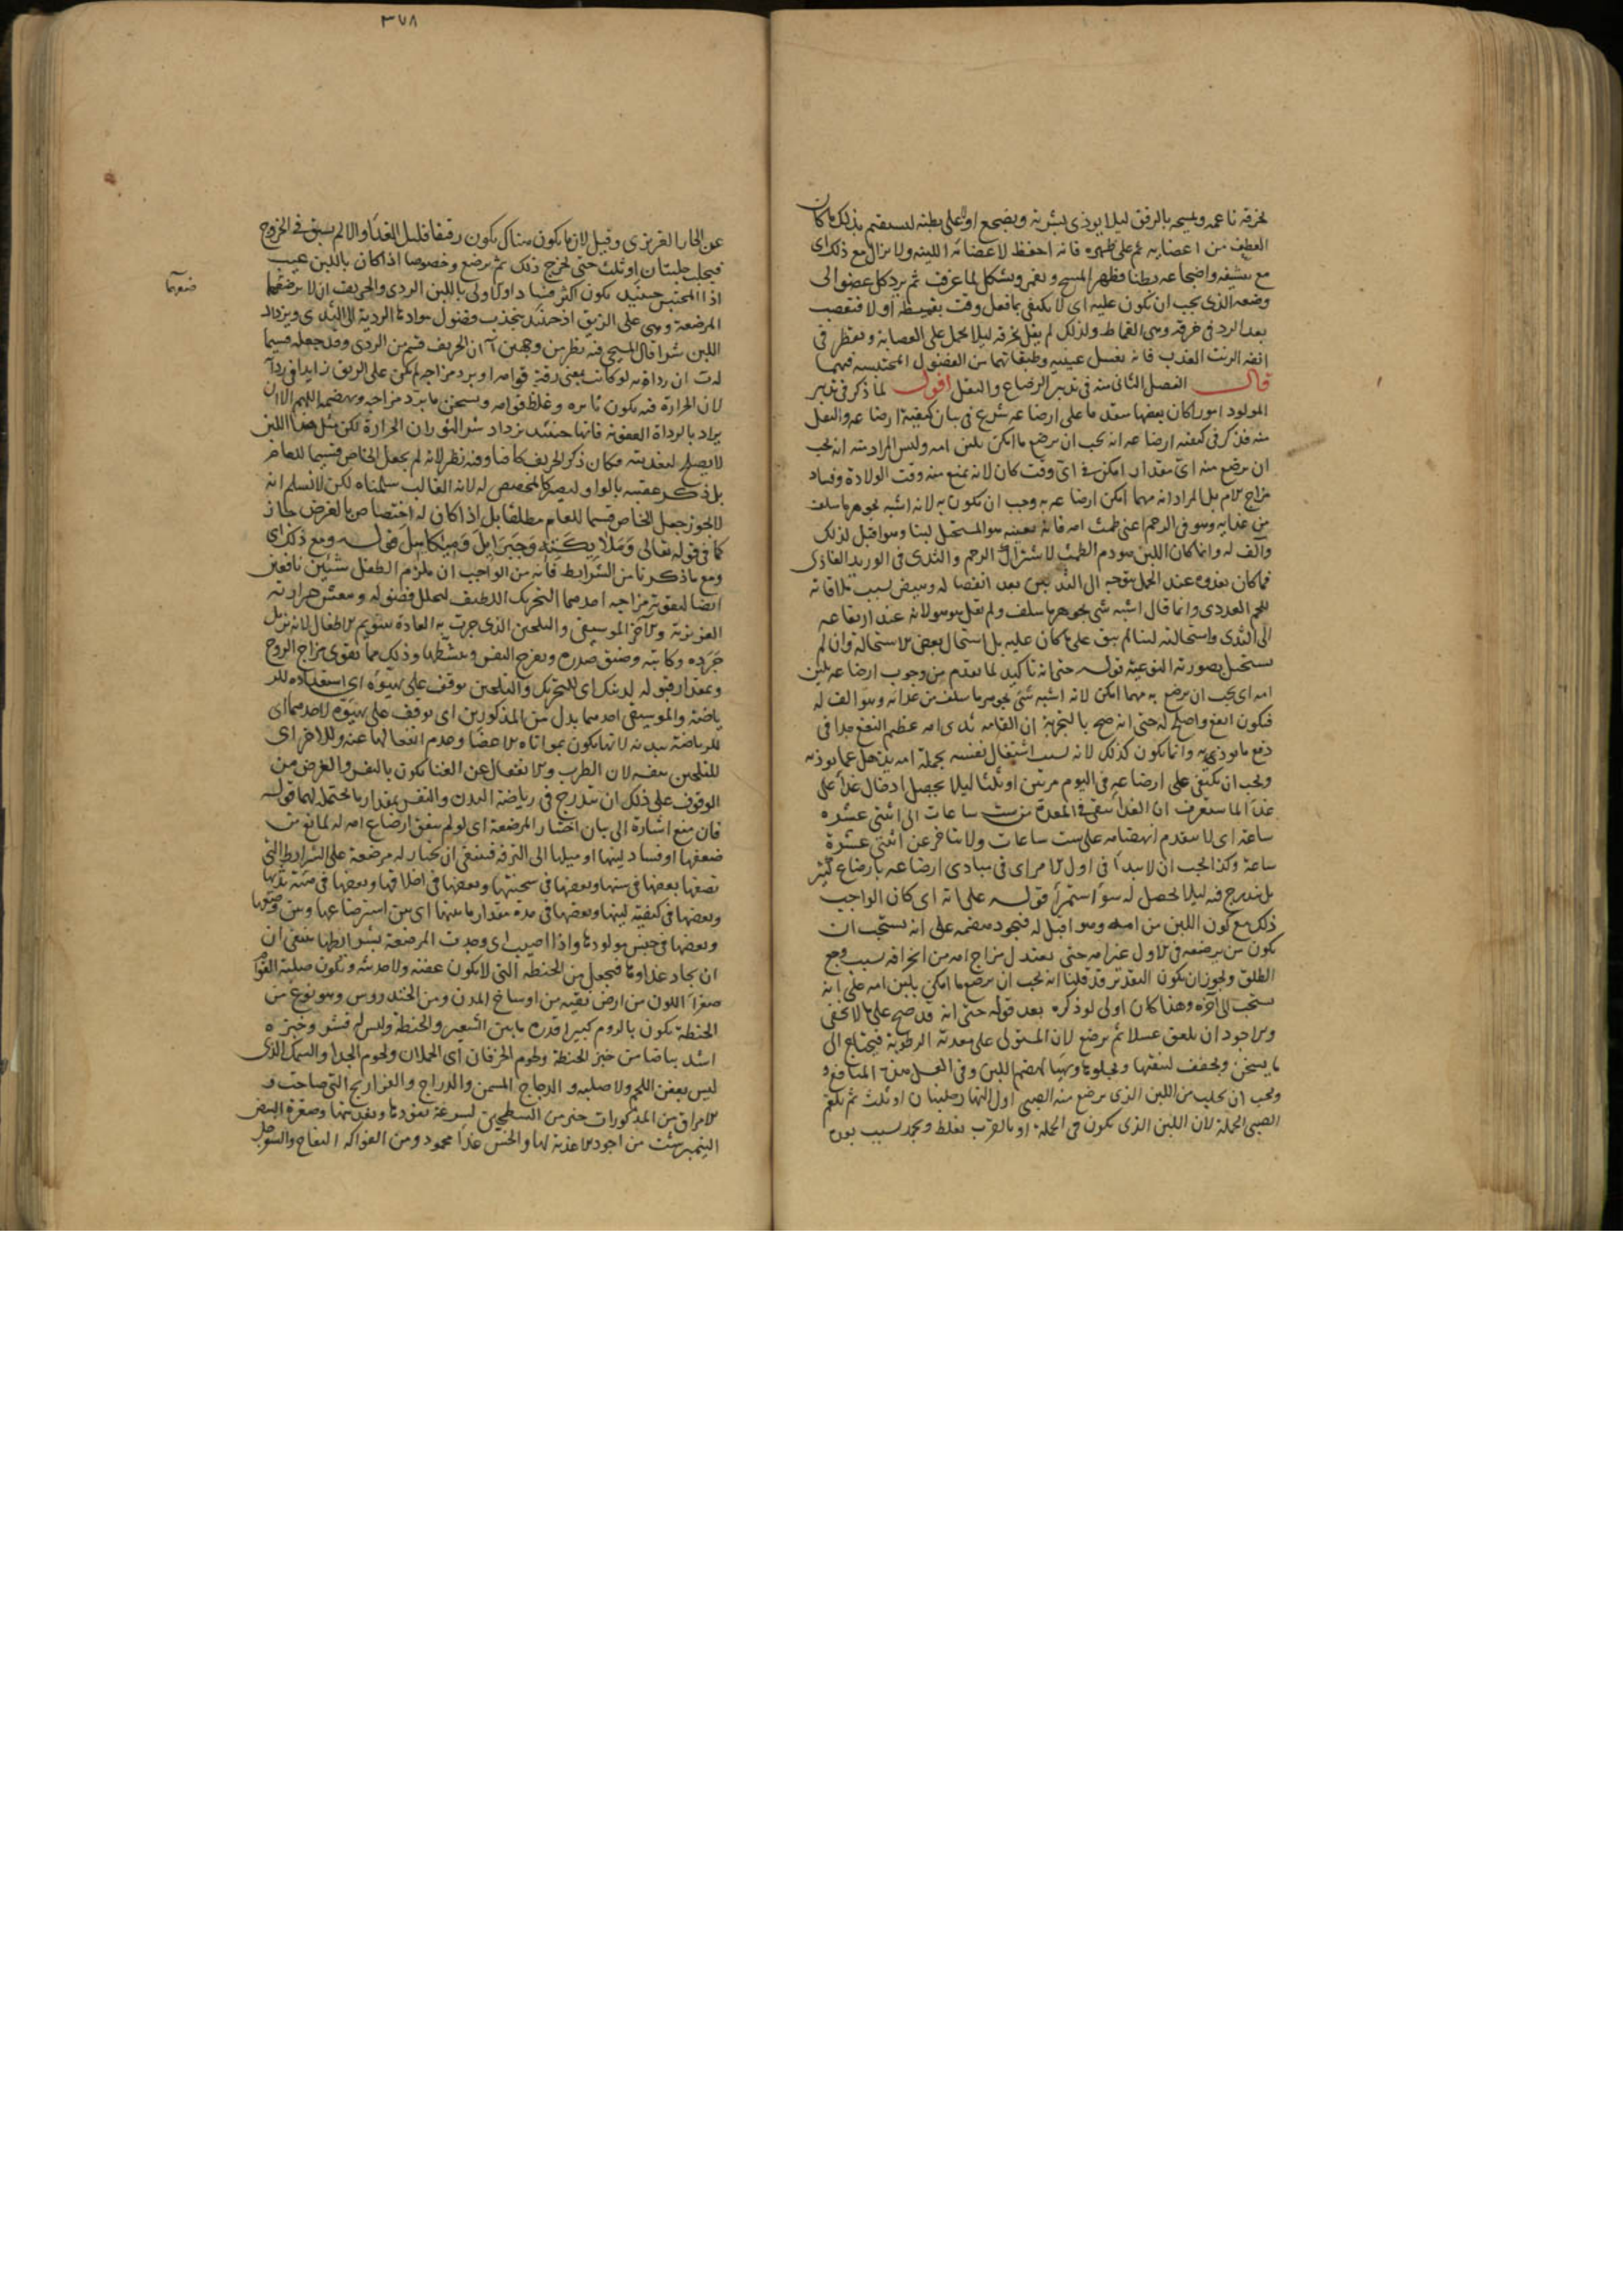 بخرقة ناعمة ويمسحه بالرفق ليلا يوذى بشرته ويضجع اولا على بطنه ليستقيم بذلك ما كان
من اعضايه ثم على ظهره فانه احفظ لاعضائه اللينه ولا يزال مع ذلك اى
مع تنشيفه واضجاعه بطنا وظهرا المسح ويغمز ويشكل لما عرفت ثم يرد كل عضو الى
وضعه الذى يجب ان يكون عليه اى لا يكتفى بما فعل وقت تقميطه اولا فتعصب
بعد الرد فى خرقة وهى القماط ولذلك لم يقل بخرقه ليلا يحمل على العصابة ويقطر فى
انفه الزيت العذب فانه يغسل عينيه وطبقاتهما من الفضول المحتبسه فيهما
قال الفصل الثانى منه فى تدبير الرضاع والنقل اقول لما ذكر فى تدبير
المولود امورا كان بعضها متقدما على ارضاعه شرع فى بيان كيفية ارضاعه والنقل
منه فذكر فى كيفية ارضاعه انه يجب ان يرضع ما امكن بلبن امه وليس المراد منه انه يجب
ان يرضع منه اى مقدار امكن فى اى وقت كان لانه يمنع منه وقت الولادة وفساد
مزاج الام بل المراد انه مهما امكن ارضاعه به وجب ان يكون به لانه اشبه بجوهر ما سلف
من غذايه وهو فى الرحم اعنى طمث امه فانه بعينه هو المستحيل لبنا وهو اقبل لذلك
وآلف له وانما كان اللبن هو دم الطمث لاشتراك الرحم والثدى فى الوريد الغاذى
فما كان يغذوه عند الحمل يتوجه الى الثديين بعد انفصاله ويبيض بسبب ملاقاته
للحم الغددى وانما قال اشبه شى بجوهر ما سلف ولم يقل هو هو لانه عند ارتفاعه
الى الثدى واستحالته لبنا لم يبق على ما كان عليه بل استحال بعض الاستحالة وان لم
يستحيل بصورته النوعية قوله حتى انه تاكيد لما تقدم من وجوب ارضاعه بلبن
امه اى يجب ان يرضع به مهما امكن لانه اشبه شى بجوهر ما سلف من غذائه وهو آلف له
فيكون انفع واصلح له حتى انه صح بالتجربة ان القامه ثدى امه عظيم النفع جدا فى
دفع ما يوذيه وانما يكون كذلك لانه بسبب اشتغال نفسه بحلمة امه يذهل عما يوذيه
ويجب ان يكتفى على ارضاعه فى اليوم مرتين او ثلثا ليلا يحصل ادخال غذا على
غذا لما ستعرف ان الغذا يبقى فى المعدة من ست ساعات الى اثنتى عشره
ساعة اى لا يتقدم انهضامه على ست ساعات ولا يتاخر عن اثنتى عشرة
ساعة وكذا يجب ان لا يبدا فى اول الامر اى فى مبادى ارضاعه بارضاع كثير
بل يتدرج فيه ليلا يحصل له سوء استمرا قوله على انه اى كان الواجب
ذلك مع كون اللبن من امه وهو اقبل له فيجود هضمه على انه يستحب ان
يكون من يرضعه فى الاول غير امه حتى يعتدل مزاج امه من انحرافه بسبب وجع
الطلق ويجوز ان يكون التقدير قد قلنا انه يجب ان يرضع ما امكن بلبن امه على انه
يستحب الى آخره وهذا كان اولى لو ذكره بعد قوله حتى انه قد صح على ما لا يخفى
والاجود ان يلعق عسلا ثم يرضع لان المستولى على معدته الرطوبة فيحتاج الى
ما يسخن ويجفف لينقيها ويجلوها ويهيا لهضم اللبن وفى العسل هذه المنافع و
يجب ان يحلب من اللبن الذى يرضع منه الصبى اول النهار حلبتان او ثلث ثم يلقم
الصبى الحلمة لان اللبن الذى يكون فى الحلمة او بالقرب يغلظ ويجمد لسبب بعده
٣٧٨
عن الحار الغريزى وقيل لان ما يكون هناك يكون رقيقا قليل الغذا والا لم يسبق فى الخروج
فيحلب حلبتان او ثلث حتى يخرج ذلك ثم يرضع وخصوصا اذا كان باللبن عيب
اذ المحتبس حينيذ يكون اكثر فسادا والاولى باللبن الردى والحريف ان لا ترضعها
المرضعة وهى على الريق اذ حينيذ ينجذب فضول موادها الردية الى الثدى ويزداد
اللبن شرا قال المسيحى فيه نظر من وجهين آ ان الحريف قسم من الردى وقد جعله قسيما
له ب ان رداءته لو كانت بمعنى رقة قوامه او برد مزاجه لم يكن على الريق زايدا فى ردا
لان الحرارة فيه يكون ثايره وغلظ قوامه ويسخن ما برد مزاجه ويهضمه اللهم الا ان
يراد بالرداة العفونة فانها حينيذ يزداد شرا لثوران الحرارة لكن مثل هذا اللبن
لا يصلح لتغذيته فكان ذكر الحريف كافيا وفيه نظر لانه لم يجعل الخاص قسيما للعام
بل ذكر عقيبه بالواو ليصير كالمخصص له لانه الغالب سلمناه لكن لا نسلم انه
لا يجوز جعل الخاص قسيما للعام مطلقا بل اذا كان له اختصاص بالغرض جاز
كما فى قوله تعالى وملائكته وجبرايل وميكايل قوله ومع ذلك اى
ومع ما ذكرنا من الشرايط فانه من الواجب ان يلزم الطفل شيئين نافعين
ايضا لتقوية مزاجه احدهما التحريك اللطيف لتحلل فضوله وينعش حرارته
الغريزية والآخر الموسيقى والتلحين الذى جرت به العادة لتنويم الاطفال لانه يزيل
حرده وكابته وضيق صدره ويفرح النفس وينشطها وذلك مما يقوى مزاج الروح
وبمقدار قبوله لذينك اى للتحريك والتلحين يوقف على تهيؤه اى استعداده للر
ياضة والموسيقى احدهما بدل من المذكورين اى يوقف على تهيؤه لاحدهما اى
للرياضة ببدنه لانها يكون بمواتاة الاعضا وعدم انفعالها عنه وللاخر اى
للتلحين بنفسه لان الطرب والانفعال عن الغنا يكون بالنفس والغرض من
الوقوف على ذلك ان يتدرج فى رياضة البدن والنفس بمقدار ما يحتمله لهما قوله
فان منع اشارة الى بيان اختيار المرضعة اى لو لم يتفق ارضاع امه له لمانع من
ضعفها او فساد لبنها او ميلها الى الترفه فينبغى ان يختار له مرضعة على الشرايط التى
نصفها بعضها فى سنها وبعضها فى سحنتها وبعضها فى اخلاقها وبعضها فى هيئة ثديها
وبعضها فى كيفية لبنها وبعضها فى مدة مقدار ما بينها اى بين استرضاعها وبين وضعها
وبعضها فى جنس مولودها واذا اصيب اى وجدت المرضعة بشرايطها ينبغى ان
ان يجاد غذاوها فيجعل من الحنطة التى لا يكون عفنه ولا حديثه وتكون صلبة القوام
صفرا اللون من ارض نقيه من اوساخ المدن ومن الخندروس وهو نوع من
الحنطة يكون بالروم كبيرا قدره ما بين الشعير والحنطة وليس له قشر وخبزه
اشد بياضا من خبز الحنطة ولحوم الخرفان اى الحملان ولحوم الجدا والسمك الذى
ليس بعفن اللحم ولا صلبه والدجاج المسمن والدراج والفراريج التى صاحت و
الامراق من المذكورات خير من لسرعة نفوذها وتغذيتها وصفرة البيض
النيمبرشت من اجود الاغذية لها والخس غذا محمود ومن الفواكه التفاح والسفرجل